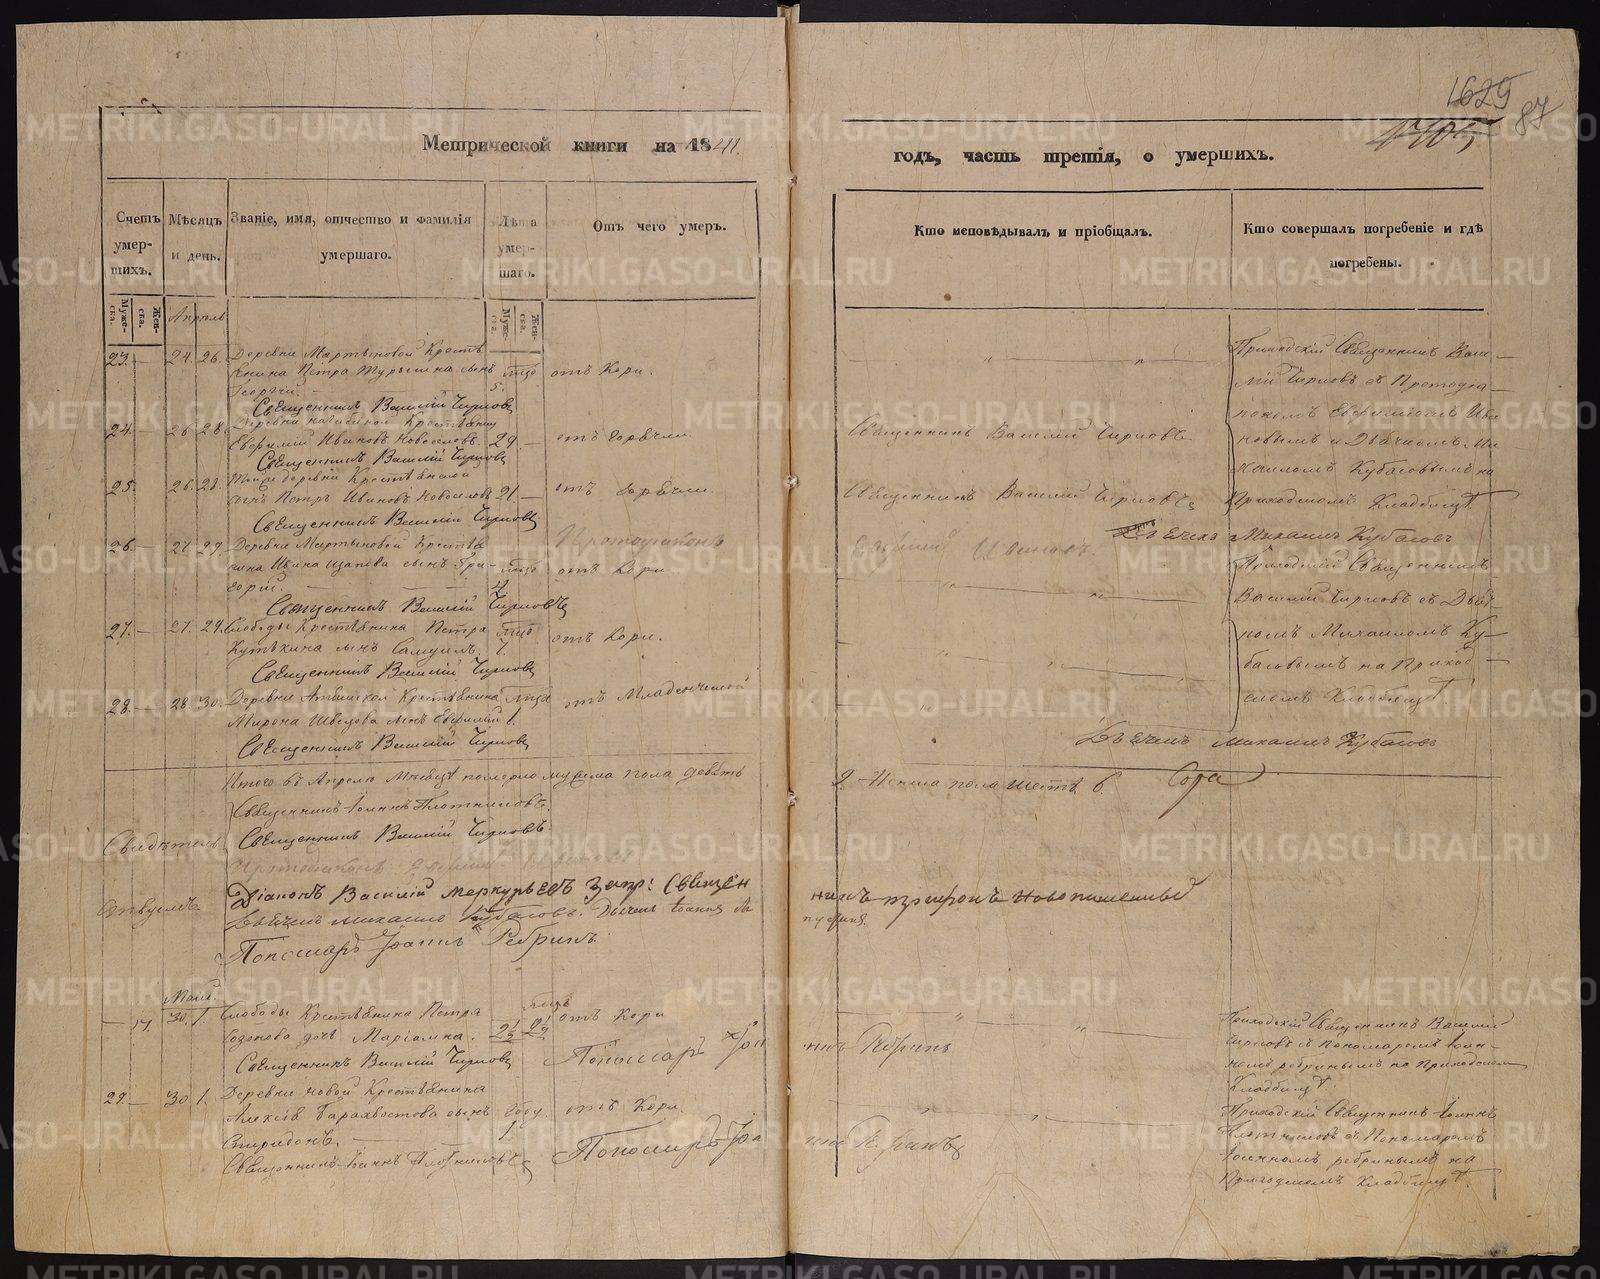 1625
87
1705
Метрической книги на 1841.
годъ, часть третія, о умершихъ.
Счетъ умер-шихъ.
Мѣсяцъ и день.
Званіе, имя, отчество и фамилія умершаго.
Лѣта умер-шаго.
Отъ чего умеръ.
Кто исповѣдывалъ и пріобщалъ.
Кто совершалъ погребеніе и гдѣ погребены.
Муже-ска.
Жен-ска.
Апрель
Муже-ска.
Жен-ска.
23. — 24. 26. Деревни Мартыновой Крестъ
янина Петра сынъ
Георгій. 5.
отъ Кори.
Священникъ Василій Чирковъ
24. — 26 28. Деревни
Евфимій Ивановъ Новоселовъ. 29 —
отъ горячки
Священникъ Василій Чирковъ
Священникъ Василій Чирковъ
25. 26. 28. Той же деревни Крестьянской
сынъ Петръ Ивановъ Новоселовъ 21. —
отъ горячки.
Священникъ Василій Чирковъ
Священникъ Василій Чирковъ
Приходскій Священникъ Васи-
лій Чирковъ съ Протодіа-
кономъ Евфиміемъ Ива-
новымъ и Дьячкомъ Ми-
хаиломъ Кубасовымъ на
Приходскомъ Кладбищѣ
26. — 27. 29. Деревни Мартыновой Крестья
нина Ивана сынъ Гри-
горій.
Протодіаконъ
отъ Кори
Евфимій Ивановъ.
Дьячекъ Михаилъ Кубасовъ
Священникъ Василій Чирковъ
27. — 27. 29. Слободы Крестьянина Петра
Кутькина сынъ Самуилъ. 1
отъ Кори.
Священникъ Василій Чирковъ
28. 28 30. Деревни Крестьянина
Мирона Швецова сынъ Евфимій 1.
отъ Младенческой
Священникъ Василій Чирковъ
Приходскій Священникъ
Василій Чирковъ съ Дьяч-
комъ Михаиломъ Ку-
басовымъ на Приход-
скомъ Кладбищѣ
Дьячекъ Михаилъ Кубасовъ
Итого въ Апрелѣ Мѣсяцѣ померло мужеска пола девять
9. Женска пола шесть 6.
Священникъ Іоаннъ Плотниковъ.
Священникъ Василій Чирковъ
Свидѣтель
Діаконъ Василій Меркурьевъ
Дьячекъ Михаилъ Кубасовъ.
Пономарь Іоаннъ Ребринъ.
Маія.
— 17. 30. 1. Слободы Крестьянина Петра
дочь Маріамна. 2½ 2½
отъ Кори
Священникъ Василій Чирковъ
Пономарь Іоаннъ Ребринъ
Приходскій Священникъ Василій
Чирковъ съ Пономаремъ Іоан-
номъ Ребринымъ на Приходскомъ
Кладбищѣ.
29. — 30 1. Деревни Новой Крестьянина
Алексѣя Барахвостова сынъ
Спиридонъ. 1
отъ Кори.
Священникъ Іоаннъ Плотниковъ
Пономарь Іоаннъ Ребринъ
Приходскій Священникъ Іоаннъ
Плотниковъ съ Пономаремъ
Іоанномъ Ребринымъ на
Приходскомъ Кладбищѣ.
METRIKI.GASO-URAL.RU